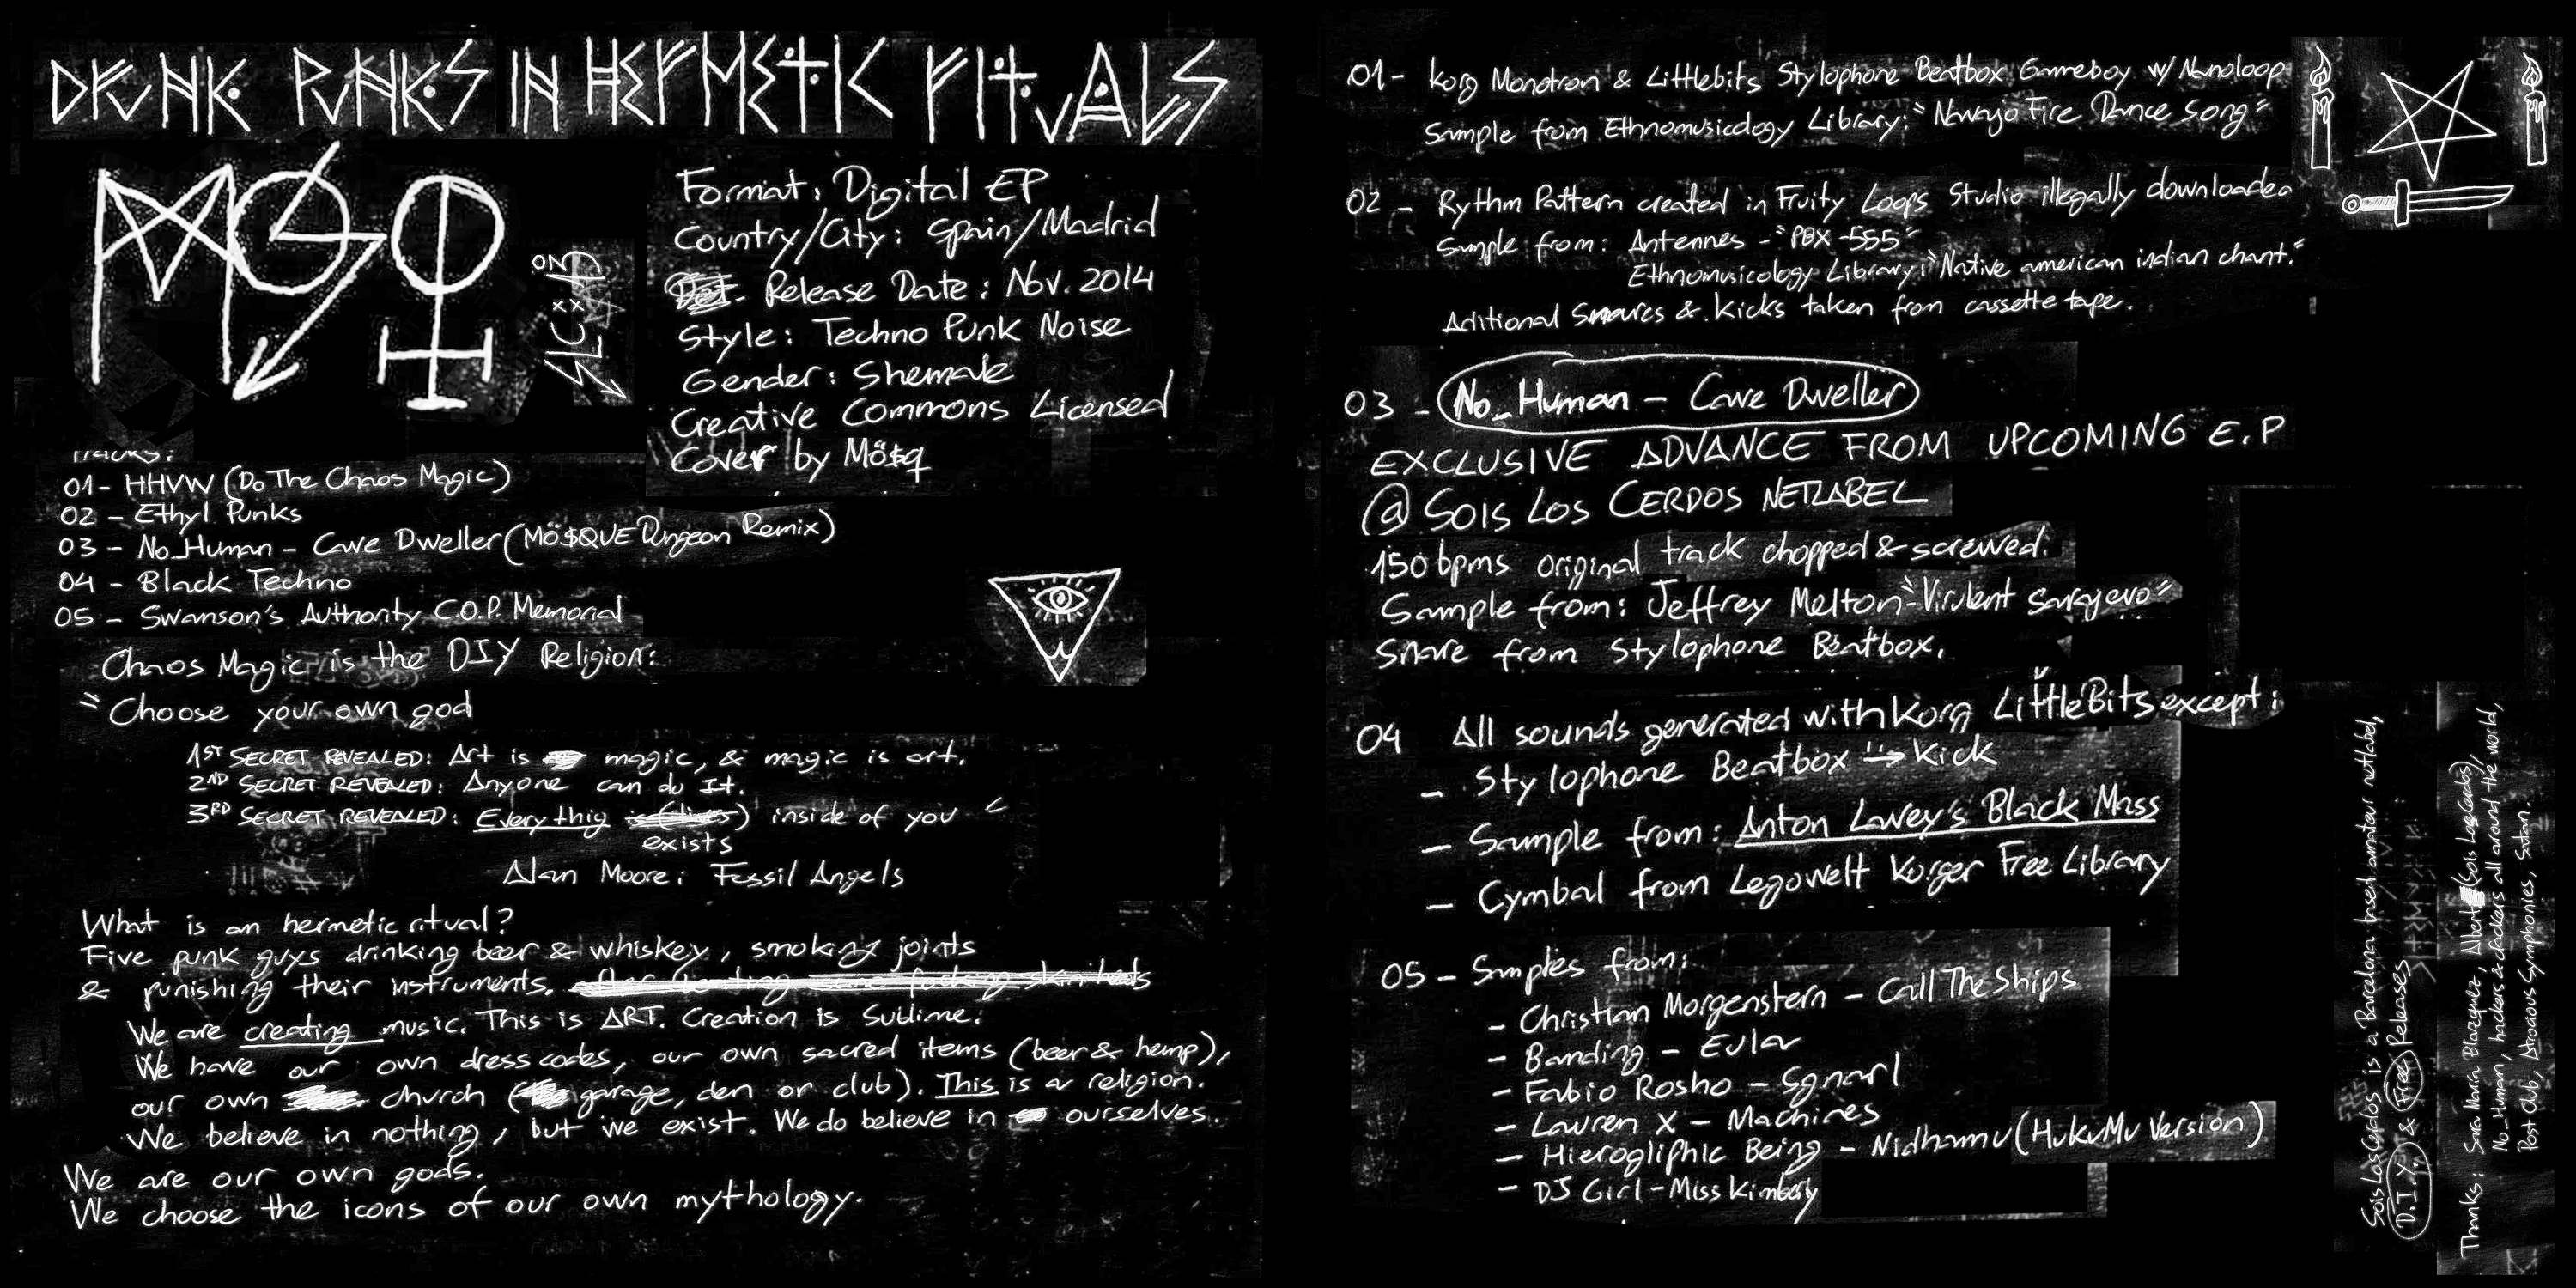 DRUNK PUNKS IN HERMETIC RITUALS
Format: Digital EP
Country/City: Spain/Madrid
Release Date: Nov. 2014
Style: Techno Punk Noise
Gender: Shemale
Creative Commons Licensed
Cover by Mö$q
Tracks:
01- HHVW (Do The Chaos Magic)
02 - Ethyl Punks
03 - No_Human - Cave Dweller (MÖ$QUE Dungeon Remix)
04 - Black Techno
05 - Swanson's Authority C.O.P. Memorial
Chaos Magic is the DIY Religion:
"Choose your own god
1ST SECRET REVEALED: Art is magic, & magic is art.
2ND SECRET REVEALED: Anyone can do It.
3RD SECRET REVEALED: Every thig is (lives) inside of you"
exists
Alan Moore: Fossil Angels
What is an hermetic ritual?
Five punk guys drinking beer & whiskey, smoking joints
& punishing their instruments. after beating some fucking skinheads
We are creating music. This is ART. Creation is Sublime.
We have our own dress codes, our own sacred items (beer & hemp),
our own church (garage, den or club). This is a religion.
We believe in nothing, but we exist. We do believe in ourselves.
We are our own gods.
We choose the icons of our own mythology.
01- Korg Monotron & Littlebits Stylophone Beatbox Gameboy w/ Nanoloop
Sample from Ethnomusicology Library: "Navajo Fire Dance Song"
02 - Rythm Pattern created in Fruity Loops Studio illegally downloaded
Sample from: Antennes - "PBX-555"
Ethnomusicology Library: "Native american indian chant."
Aditional Snares & Kicks taken from cassette tape.
03 - No_Human - Cave Dweller
EXCLUSIVE ADVANCE FROM UPCOMING E.P
@ SOIS LOS CERDOS NETLABEL
150 bpms original track chopped & screwed.
Sample from: Jeffrey Melton - "Virulent Sarajevo"
Snare from Stylophone Beatbox.
04 All sounds generated with Korg LittleBits except:
- Stylophone Beatbox → Kick
- Sample from: Anton Lavey's Black Mass
- Cymbal from Legowelt Korger Free Library
05 - Smples from:
- Christian Morgenstern - Call The Ships
- Banding - Eular
- Fabio Rosho - Sgnarl
- Lauren X - Machines
- Hierogliphic Being - Nidhamu (HukuMu Version)
- DJ Girl - Miss Kimberly
Sois Los Cerdos is a Barcelona based amateur netlabel,
D.I.Y. & Free Releases
Thanks: Sara María Blazquez, Albert (Sois Los Cerdos),
No_Human, hackers & fuckers all around the world,
Post club, Atrocious Symphonies, Satan.